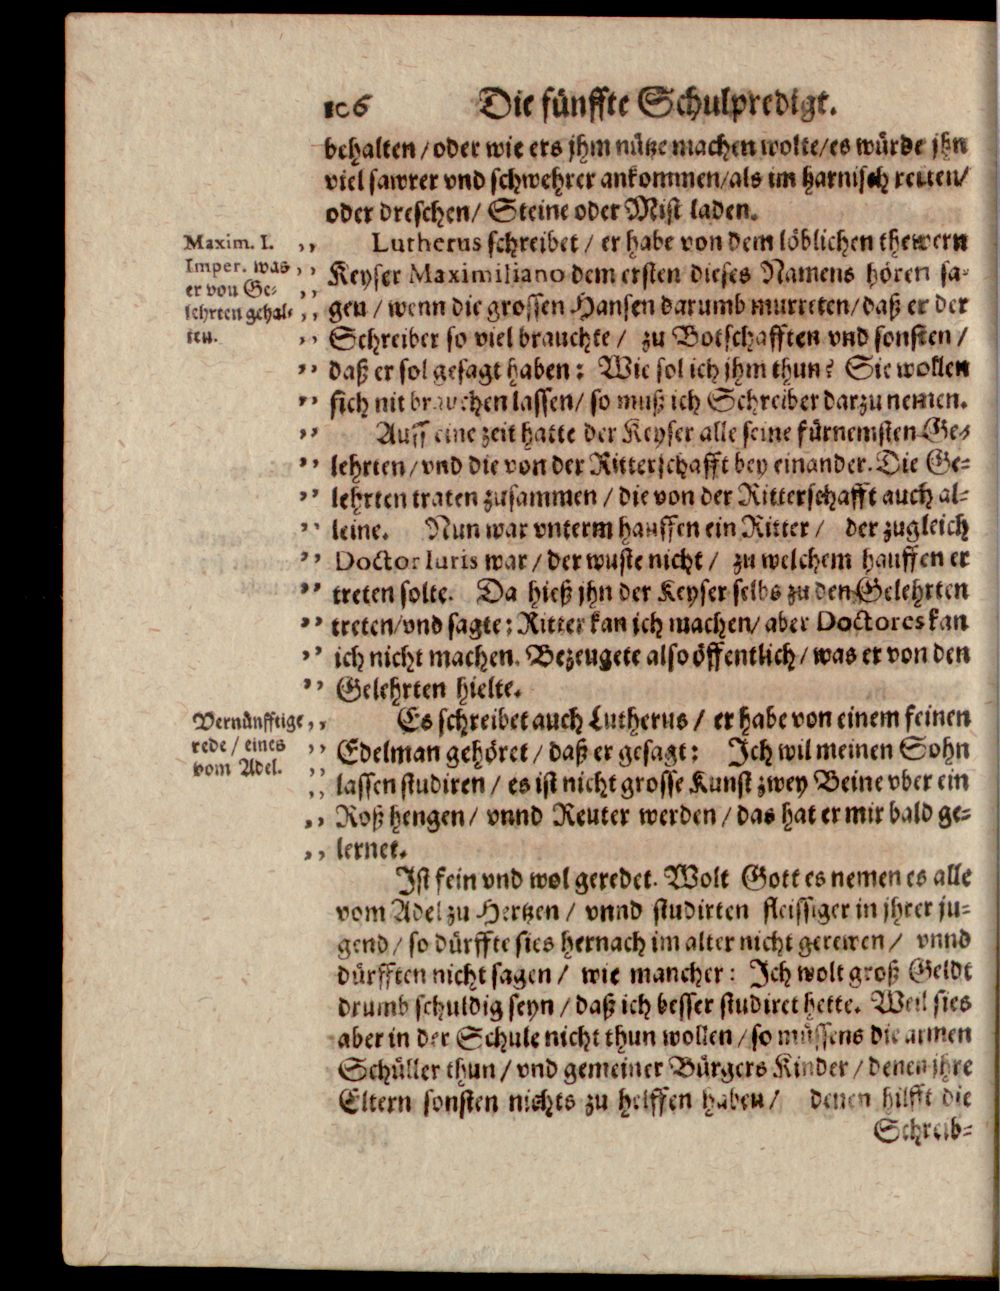 106 Die fünffte Schulpredigt.
behalten / oder wie ers jhm nütze machen wolte / es würde jhn
viel sawrer vnd schwehrer ankommen / als im harnisch reiten /
oder dreschen / Steine oder Mist laden.
Maxim. I.
Imper. was
er von Ge-
lehrten gehal-
ten.
„ Lutherus schreibet / er habe von dem löblichen thewern
„ Keyser Maximiliano dem ersten dieses Namens hören sa-
„ gen / wenn die grossen Hansen darumb murreten / daß er der
„ Schreiber so viel brauchte / zu Botschafften vnd sonsten /
„ daß er sol gesagt haben: Wie sol ich jhm thun? Sie wollen
„ sich nit brauchen lassen / so muß ich Schreiber darzu nemen.
„ Auff eine zeit hatte der Keyser alle seine fürnemsten Ge-
„ lehrten / vnd die von der Ritterschafft bey einander. Die Ge-
„ lehrten traten zusammen / die von der Ritterschafft auch al-
„ leine. Nun war vnterm hauffen ein Ritter / der zugleich
„ Doctor Iuris war / der wuste nicht / zu welchem hauffen er
„ treten solte. Da hieß jhn der Keyser selbs zu den Gelehrten
„ treten / vnd sagte: Ritter kan ich machen / aber Doctores kan
„ ich nicht machen. Bezeugete also öffentlich / was er von den
„ Gelehrten hielte.
Vernünfftige
rede / eines
vom Adel.
„ Es schreibet auch Lutherus / er habe von einem feinen
„ Edelman gehöret / daß er gesagt: Ich wil meinen Sohn
„ lassen studiren / es ist nicht grosse Kunst zwey Beine vber ein
„ Roß hengen / vnnd Reuter werden / das hat er mir bald ge-
„ lernet.
Ist fein vnd wol geredet. Wolt Gott es nemen es alle
vom Adel zu Hertzen / vnnd studirten fleissiger in jhrer ju-
gend / so dürffte sies hernach im alter nicht gerewen / vnnd
dürfften nicht sagen / wie mancher: Ich wolt groß Geldt
drumb schuldig seyn / daß ich besser studiret hette. Weil sies
aber in der Schule nicht thun wollen / so müssens die armen
Schüller thun / vnd gemeiner Bürgers Kinder / denen jhre
Eltern sonsten nichts zu helffen haben / denen hilfft die
Schreib-